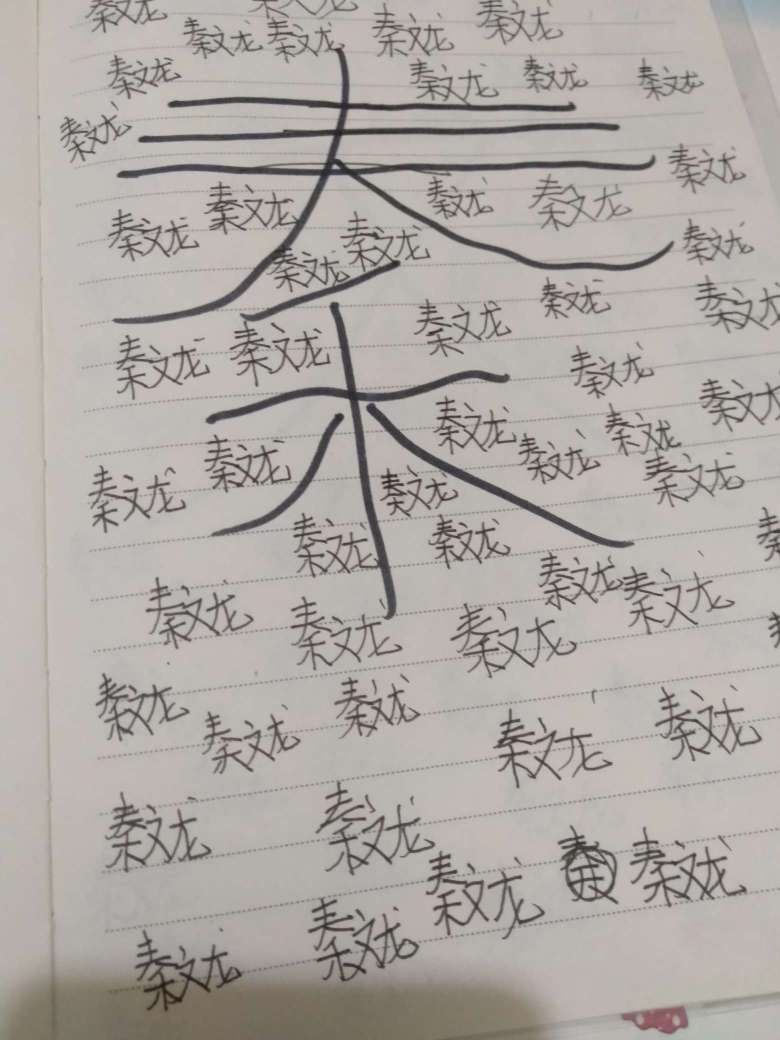 秦文龙 秦文龙
秦文龙 秦文龙 秦文龙 秦文龙
秦文龙 秦文龙 秦文龙 秦文龙
秦文龙 秦文龙
秦
秦文龙 秦文龙 秦文龙 秦文龙
秦文龙 秦文龙 秦文龙
秦文龙 秦文龙
秦文龙 秦文龙 秦文龙
秦文龙 秦文龙
秦文龙 秦文龙
秦文龙 秦文龙 秦文龙 秦文龙
秦文龙
秦文龙 秦文龙
秦文龙 秦文龙 秦文龙 秦文龙 秦文龙
秦文龙 秦文龙 秦文龙 秦文龙 秦文龙
秦文龙 秦文龙
秦文龙 秦文龙
秦文龙 秦文龙